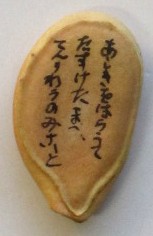 あしきをはらうて
たすけたまへ、
てんりわうのみこと